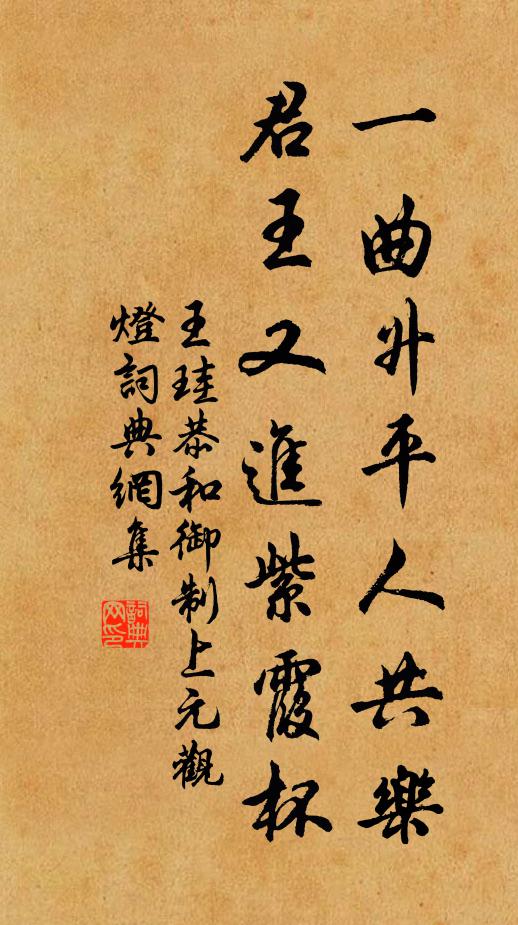 一曲升平人共樂
君王又進紫霞杯
王珪恭和御制上元觀
燈詞典網集
詞典
网印